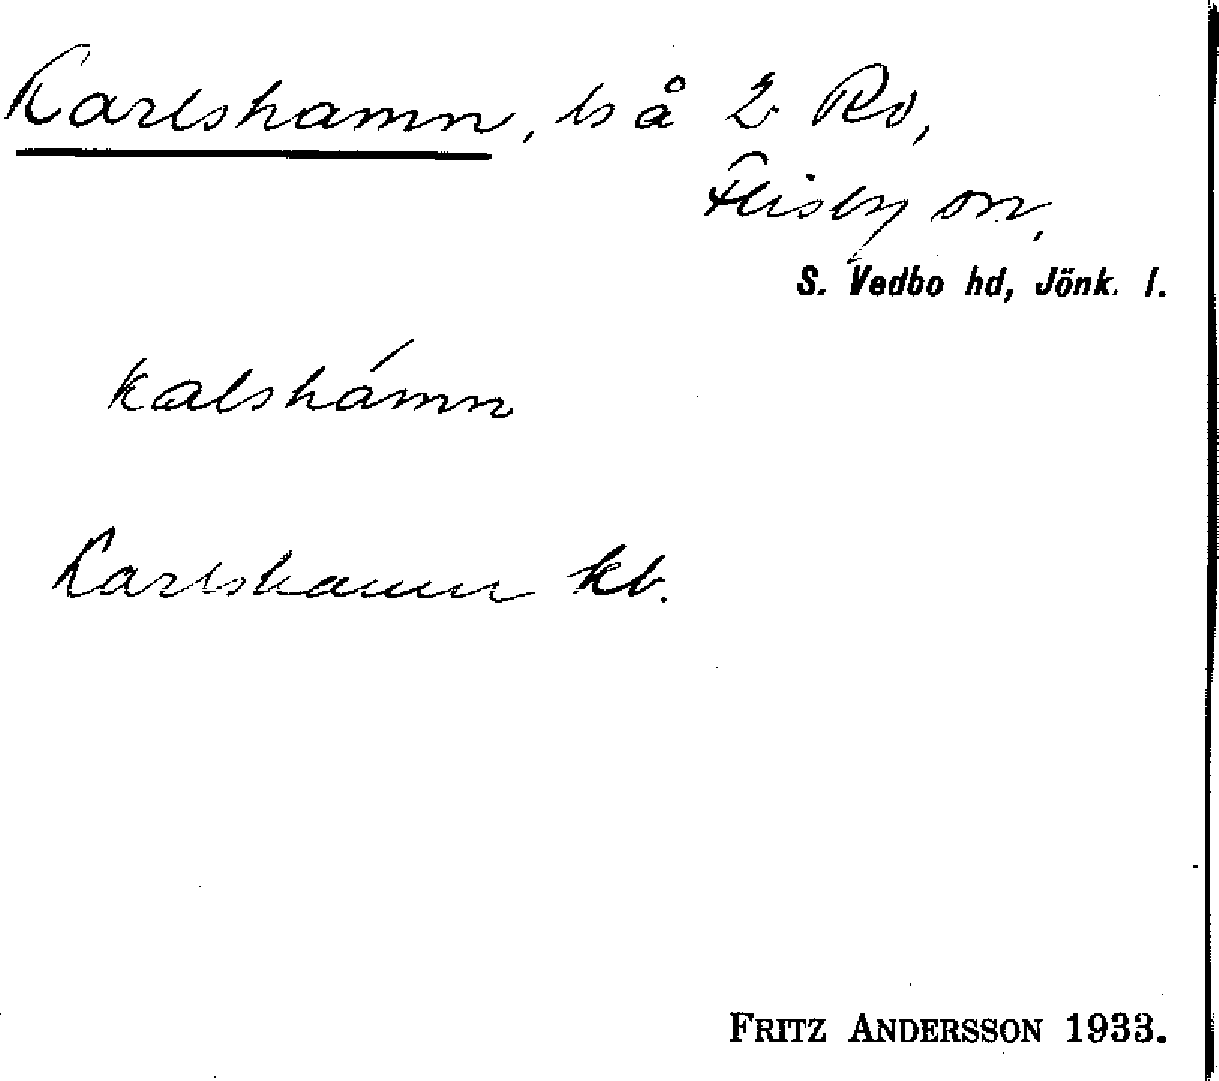 Karlshamn, ls å 2 Ro,
Flisby sn,
S. Vedbo hd, Jönk. l.
kalshámn
Karlshamn kb.
FRITZ ANDERSSON 1933.